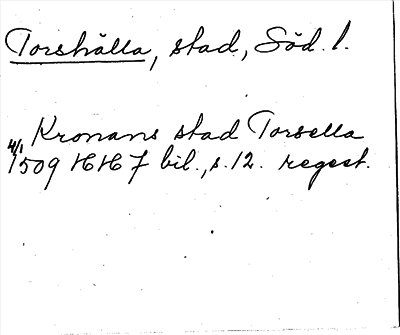 Torshälla, stad, Söd. l.
Kronans stad Torsella
4/1 1509 HH 7 bil., s. 12. regest.